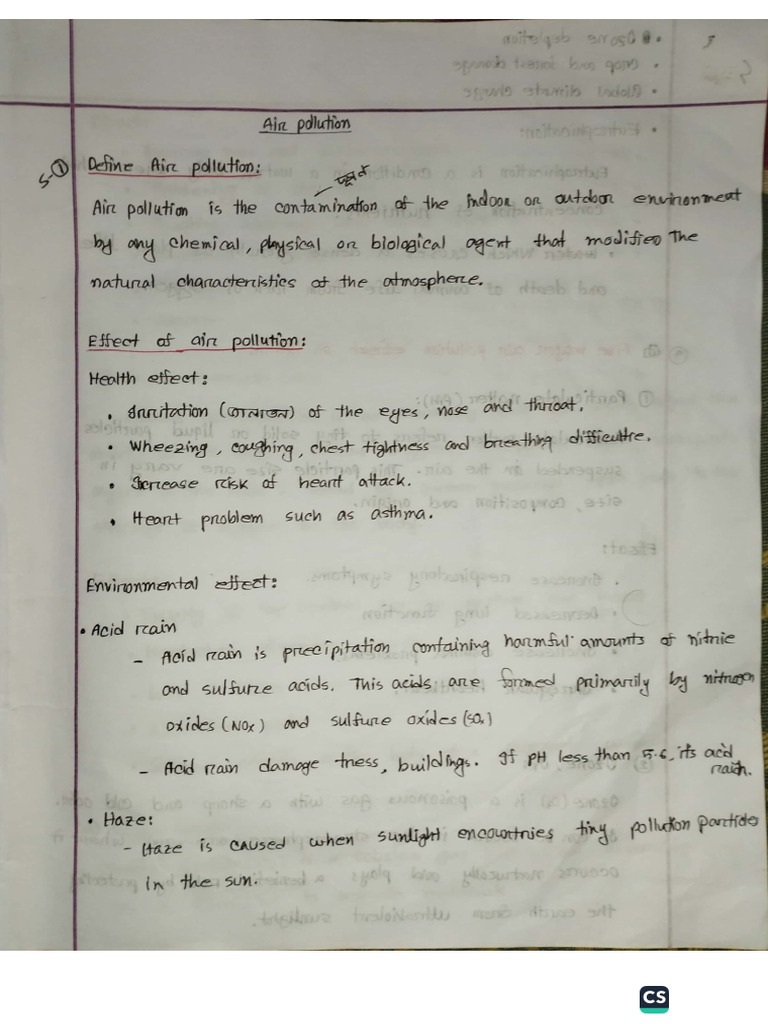 Air pollution
5-① Define Air pollution:
Air pollution is the contamination of the indoor or outdoor environment
by any chemical, physical or biological agent that modified The
natural characteristics of the atmosphere.
Effect of air pollution:
Health effect:
• Irritation (জ্বালাতন) of the eyes, nose and throat.
• Wheezing, coughing, chest tightness and breathing difficultre.
• Increase risk of heart attack.
• Heart problem such as asthma.
Environmental effect:
• Acid rain
- Acid rain is precipitation containing harmful amounts of nitric
and sulfure acids. This acids are formed primarily by nitrogen
oxides (NOx) and sulfure oxides (SOx)
- Acid rain damage tress, buildings. If PH less than 5.6, its acid
rain.
• Haze:
- Haze is caused when sunlight encountries tiny pollution particles
in the sun.
CS